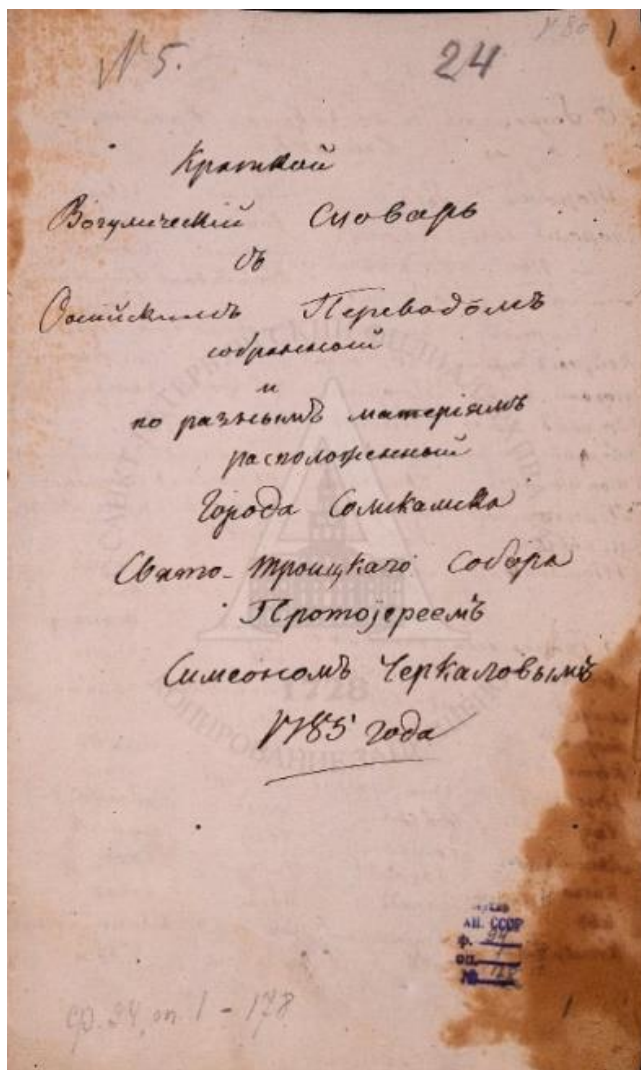 № 5. 24
1
Краткой
Вогулический Словарь
съ
Россійскимъ Переводомъ
собранной
и
по разнымъ матеріямъ
расположенной
Города Соликамска
Свято-Троицкаго Собора
Протоjереемъ
Симеономъ Черкаловымъ
1785 года
АН. СССР
ф. 94
оп. 1
№
ф. 94, оп 1 - 178